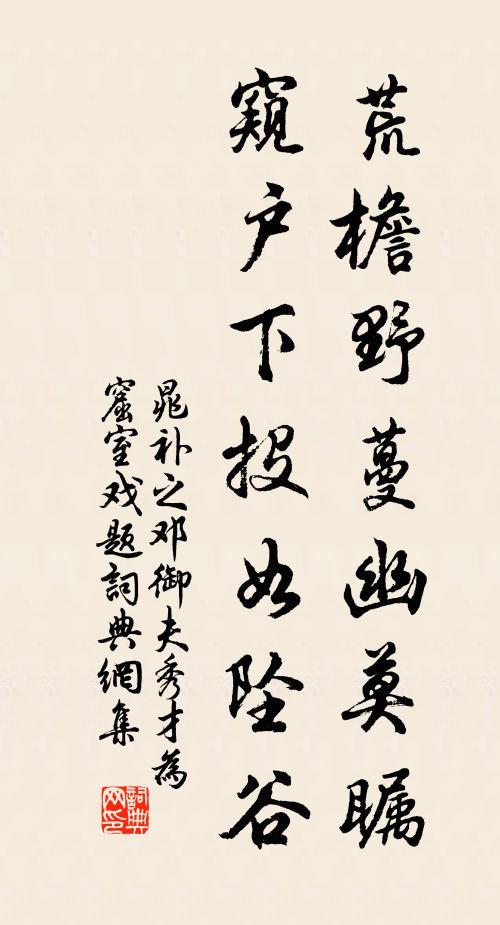 荒檐野蔓幽莫瞩
窺户下投如坠谷
晁补之邓御夫秀才為
窟室戏题詞典網集
詞典网印